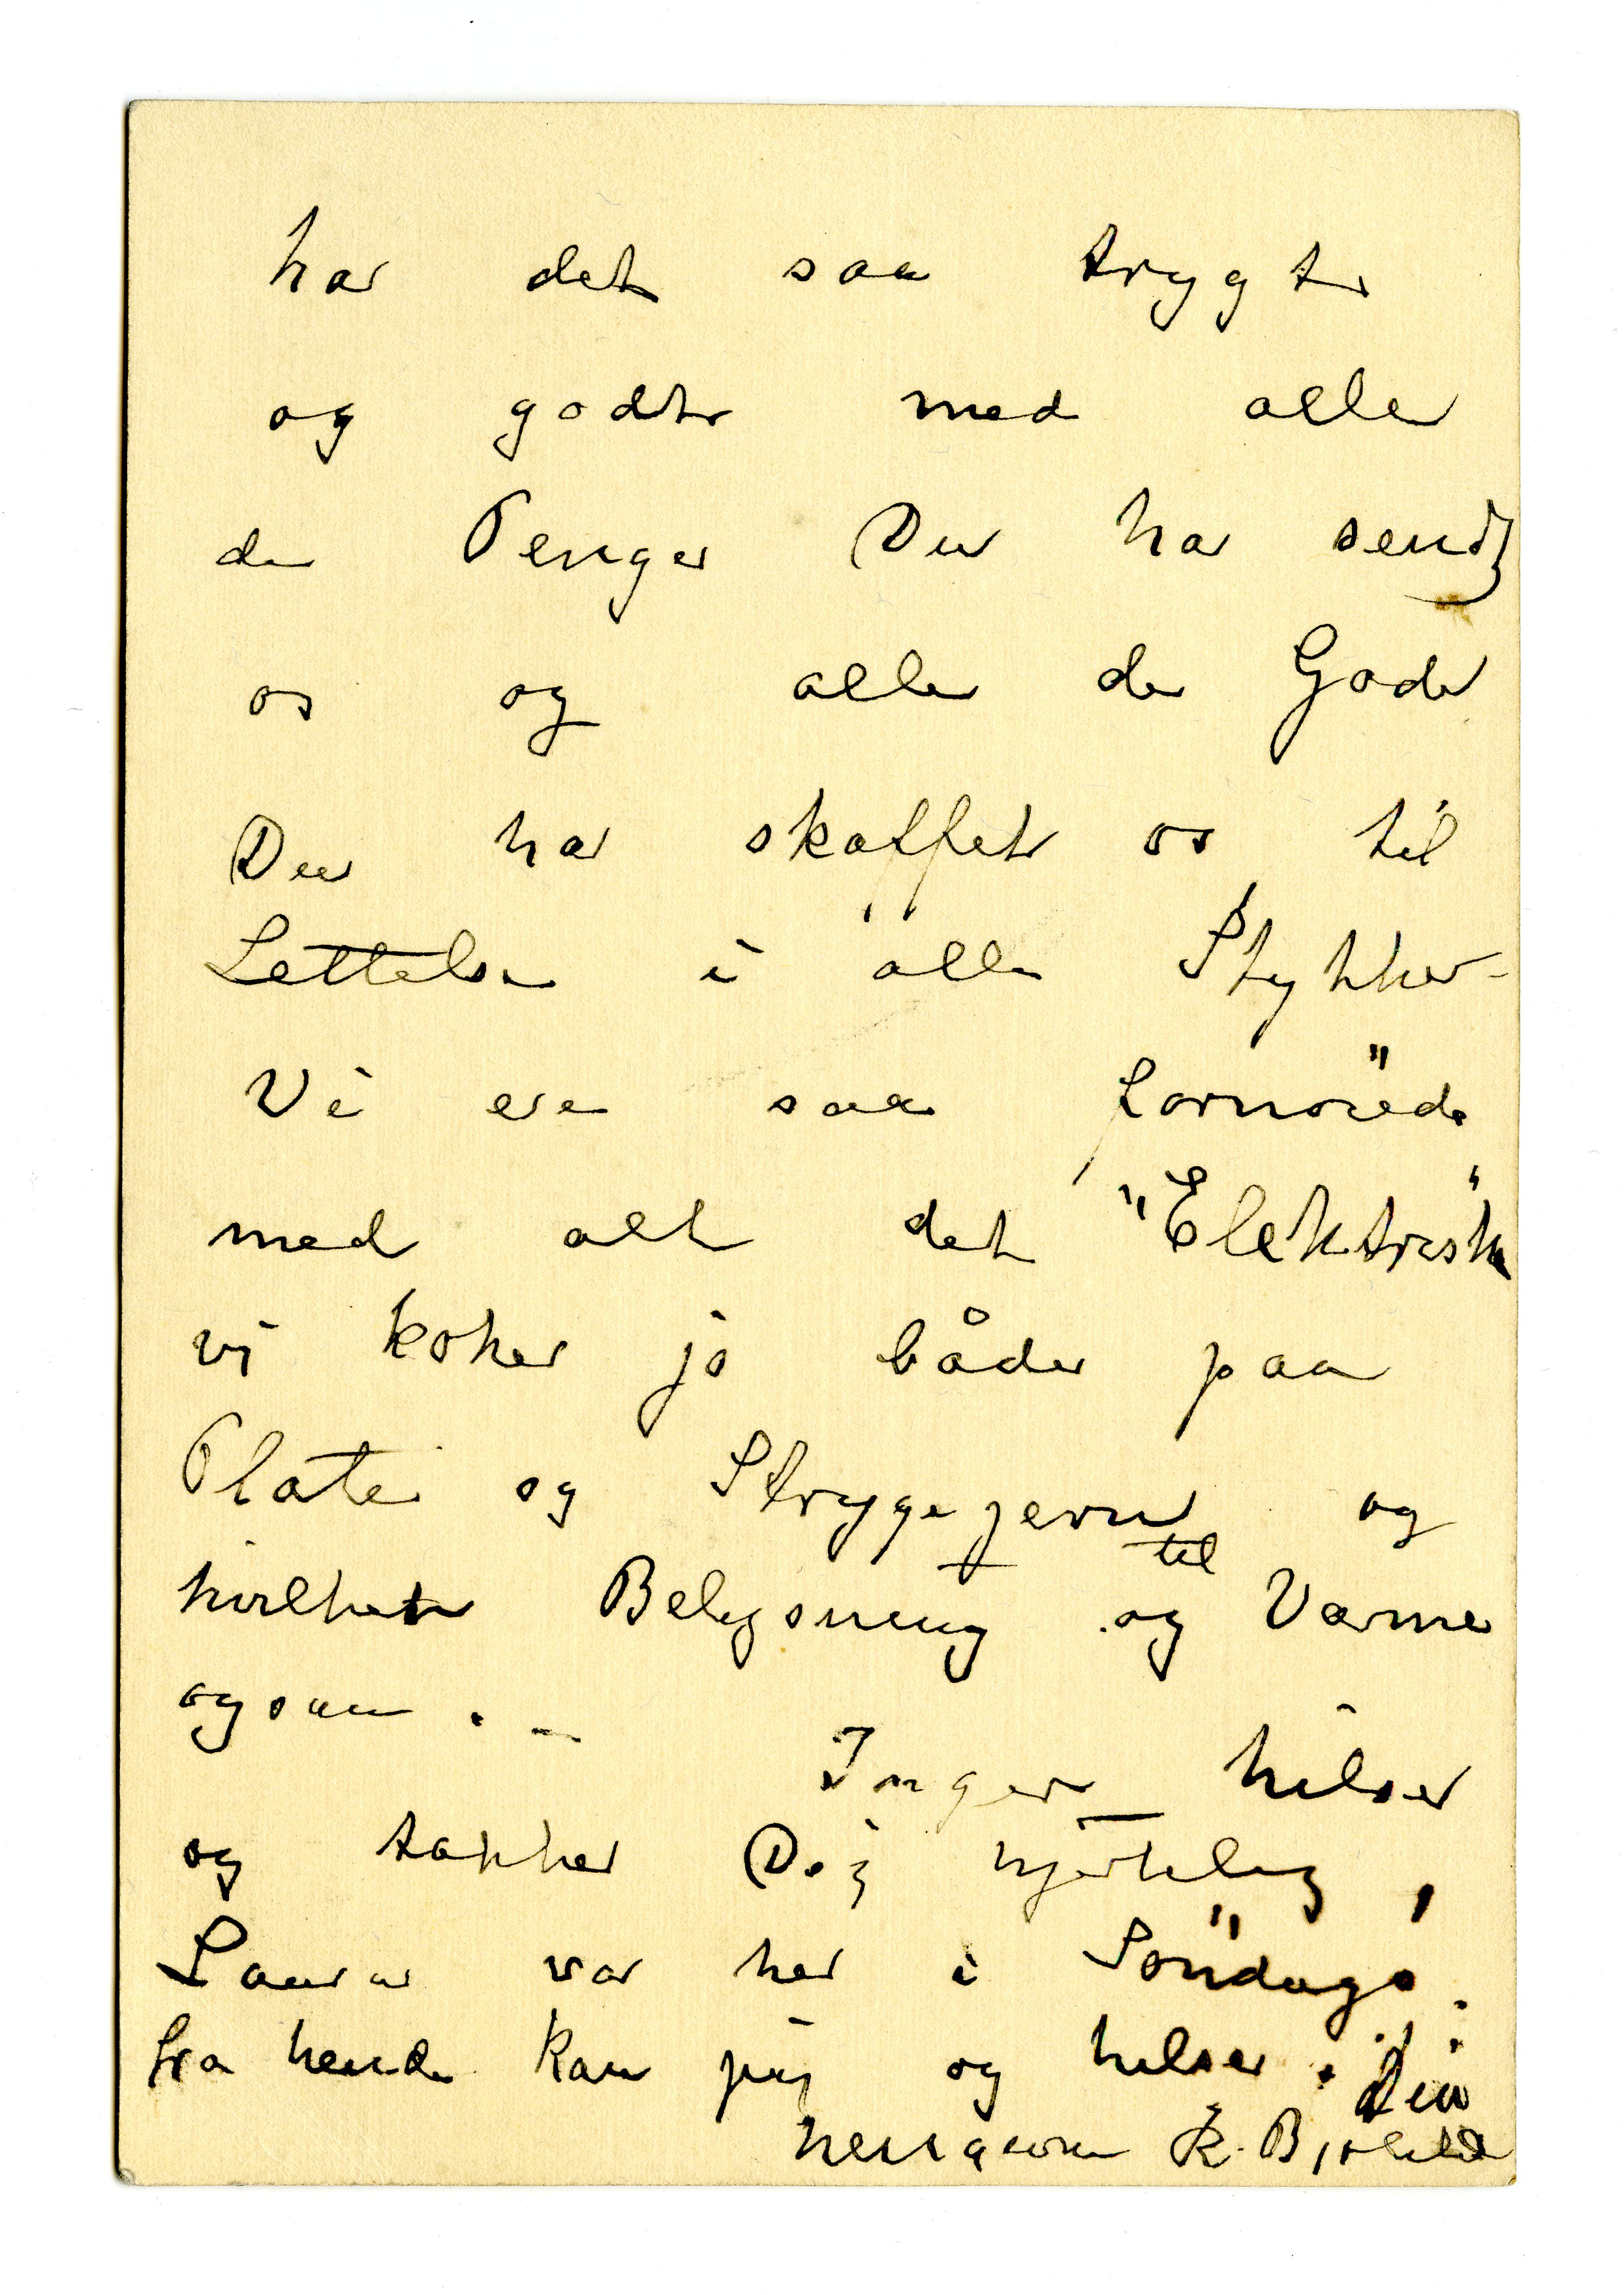 har det saa trygt
og godt med alle
de Penger Du har sendt
os og alle de Gode
Du har skaffet os til
Lettelse i alle Stykker-
Vi ere saa fornøiede
med alt det "Elektriske"
vi koker jo både paa
Plate og Strygejern og
hvilken Belysning og til Varme
ogsaa . -
Inger hilser
og takker Dig hjertelig,
Laura var her i Söndags.
fra hende kan jeg og hilse . Din
hengivne K. Bjølstad